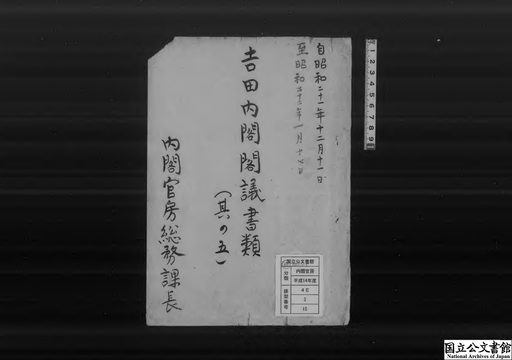 自昭和二十一年十二月十一日
至昭和二十二年一月十七日
吉田内閣閣議書類
（其の五）
内閣官房総務課長
国立公文書館
分類
内閣官房
平成14年度
排架番号
4E
3
15
1 2 3 4 5 6 7 8 9
国立公文書館
National Archives of Japan